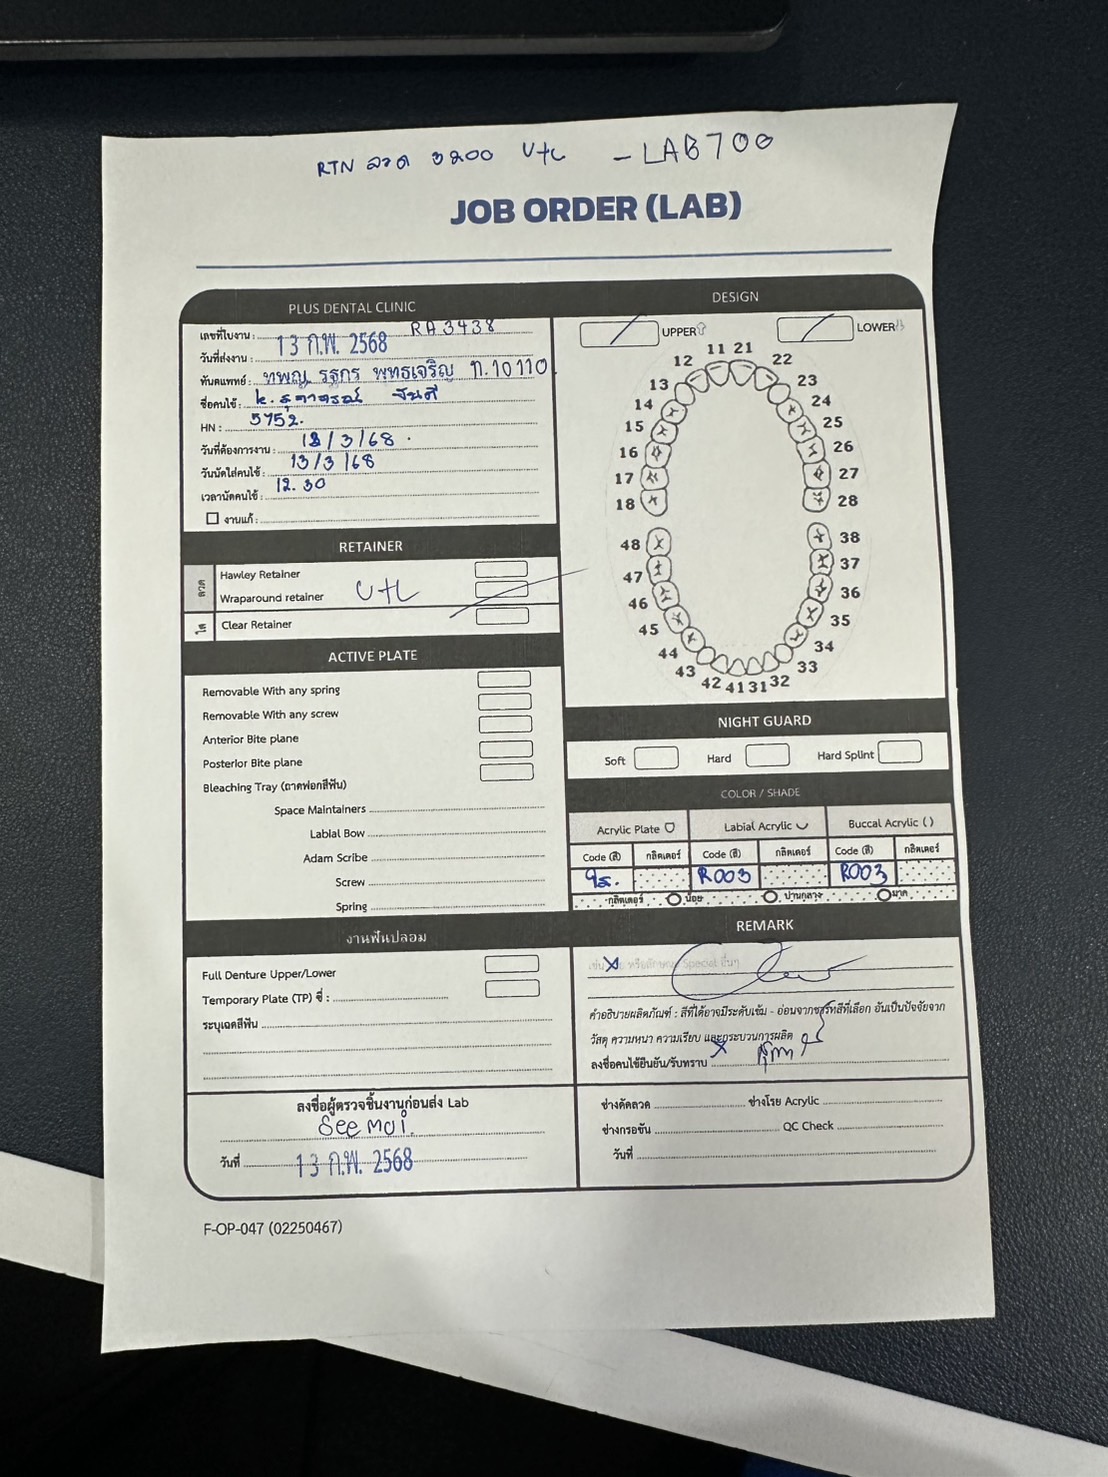 RTN ลวด 3200 U+L - LAB 700
JOB ORDER (LAB)
PLUS DENTAL CLINIC
เลขที่ใบงาน : RA3438
วันที่ส่งงาน : 13 ก.พ. 2568
ทันตแพทย์ : ทพญ. รฐกร พุทธเจริญ ท.10110
ชื่อคนไข้ : k.
HN : 5752.
วันที่ต้องการงาน : 12/3/68.
วันนัดใส่คนไข้ : 13/3/68
เวลานัดคนไข้ : 12.30
งานแก้ :
RETAINER
ลวด
Hawley Retainer
Wraparound retainer U+L
ใส
Clear Retainer
ACTIVE PLATE
Removable With any spring
Removable With any screw
Anterior Bite plane
Posterior Bite plane
Bleaching Tray (ถาดฟอกสีฟัน)
Space Maintainers
Labial Bow
Adam Scribe
Screw
Spring
งานฟันปลอม
Full Denture Upper/Lower
Temporary Plate (TP) ซี่ :
ระบุเฉดสีฟัน
ลงชื่อผู้ตรวจชิ้นงานก่อนส่ง Lab
See moi.
วันที่ 13 ก.พ. 2568
DESIGN
UPPER
LOWER
11 21
12 22
13 23
14 24
15 25
16 26
17 27
18 28
48 38
47 37
46 36
45 35
44 34
43 33
42 41 31 32
NIGHT GUARD
Soft Hard Hard Splint
COLOR / SHADE
Acrylic Plate Labial Acrylic Buccal Acrylic ( )
Code (สี) กลิตเตอร์ Code (สี) กลิตเตอร์ Code (สี) กลิตเตอร์
ใส. R003 R003
กลิตเตอร์ น้อย ปานกลาง มาก
REMARK
หรือลักษณะ Special อื่นๆ
คำอธิบายผลิตภัณฑ์ : สีที่ได้อาจมีระดับเข้ม - อ่อนจากชาร์ทสีที่เลือก อันเป็นปัจจัยจาก
วัสดุ ความหนา ความเรียบ และกระบวนการผลิต
ลงชื่อคนไข้ยืนยัน/รับทราบ
ช่างดัดลวด ช่างโรย Acrylic
ช่างกรอขัน QC Check
วันที่
F-OP-047 (02250467)